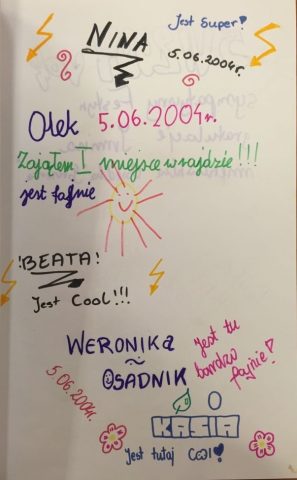 Jest Super!
NINA
5.06.2004r.
Olek 5.06.2004r.
Zająłem I miejsce w rajdzie!!!
jest fajnie
!BEATA!
Jest Cool!!!
WERONIKA
~
OSADNIK
Jest tu
bardzo
fajnie!
5.06.2004r.
KASIA
Jest tutaj Cool!